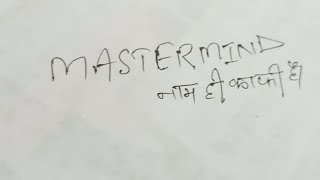 MASTERMIND
नाम ही काफी है